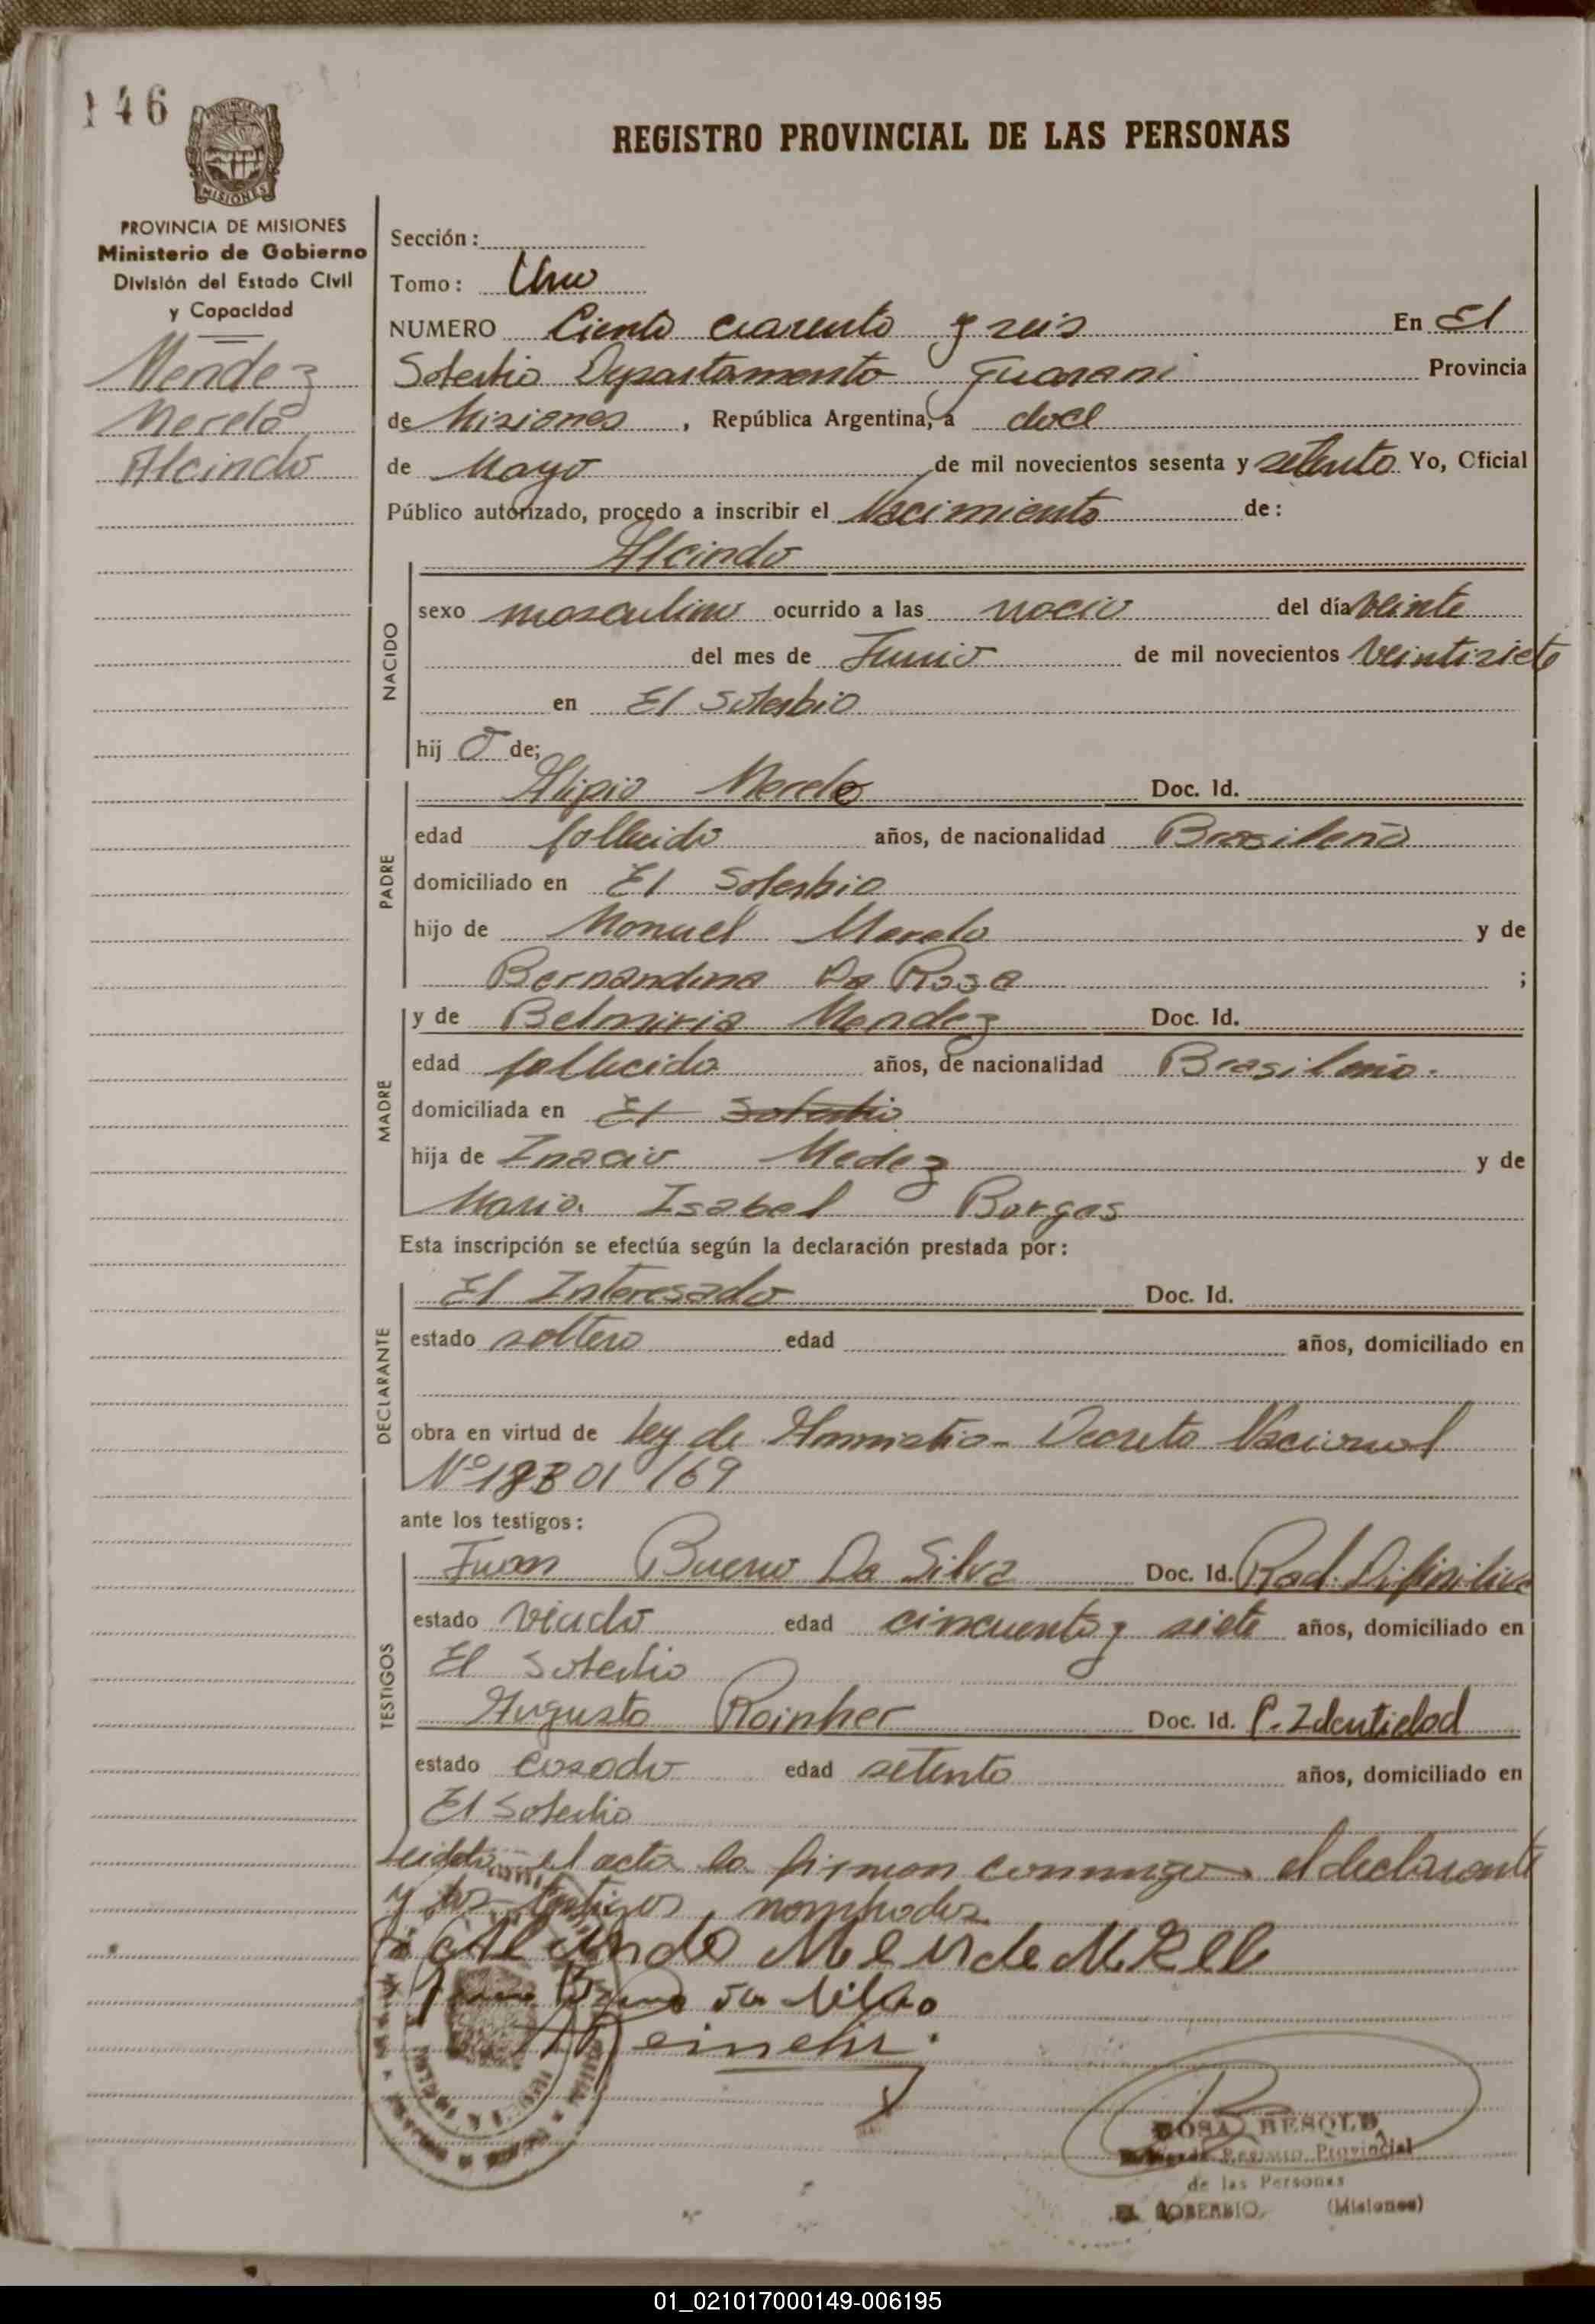 146
REGISTRO PROVINCIAL DE LAS PERSONAS
PROVINCIA DE MISIONES
Ministerio de Gobierno
División del Estado Civil
y Capacidad
Mendez
Merelo
Alcindo
Sección:
Tomo: Uno
NUMERO Ciento cuarenta y seis En El
Soberbio Departamento Guarani Provincia
de Misiones, República Argentina, a doce
de Mayo de mil novecientos sesenta y setenta Yo, Oficial
Público autorizado, procedo a inscribir el Nacimiento de:
Alcindo
NACIDO
sexo masculino ocurrido a las del día veinte
del mes de Junio de mil novecientos veintisiete
en El Soberbio
hijo de;
PADRE
Alipio Merelo Doc. Id.
edad fallecido años, de nacionalidad Brasileña
domiciliado en El Soberbio
hijo de Manuel Merelo y de
Bernandina Da Rosa ;
MADRE
y de Belmiria Mendez Doc. Id.
edad fallecida años, de nacionalidad Brasileña.
domiciliada en El Soberbio
hija de Inacio Medez y de
Maria Isabel Borges
Esta inscripción se efectúa según la declaración prestada por:
DECLARANTE
El Interesado Doc. Id.
estado soltero edad años, domiciliado en
obra en virtud de Ley de Amnistia- Decreto Nacional
Nº 18301/69
ante los testigos:
TESTIGOS
Juan Bueno Da Silva Doc. Id. Rad. Difinitiva
estado viudo edad cincuenta y siete años, domiciliado en
El Soberbio
Augusto Rainher Doc. Id. C. Identidad
estado casado edad setenta años, domiciliado en
El Soberbio
Leida el acta la firman conmigo el declarante
y los testigos nombrados
Alcindo Mende Mrelo
da Silva
ROSA BESOLD
Registro Provincial
de las Personas
EL SOBERBIO, (Misiones)
01_021017000149-006195